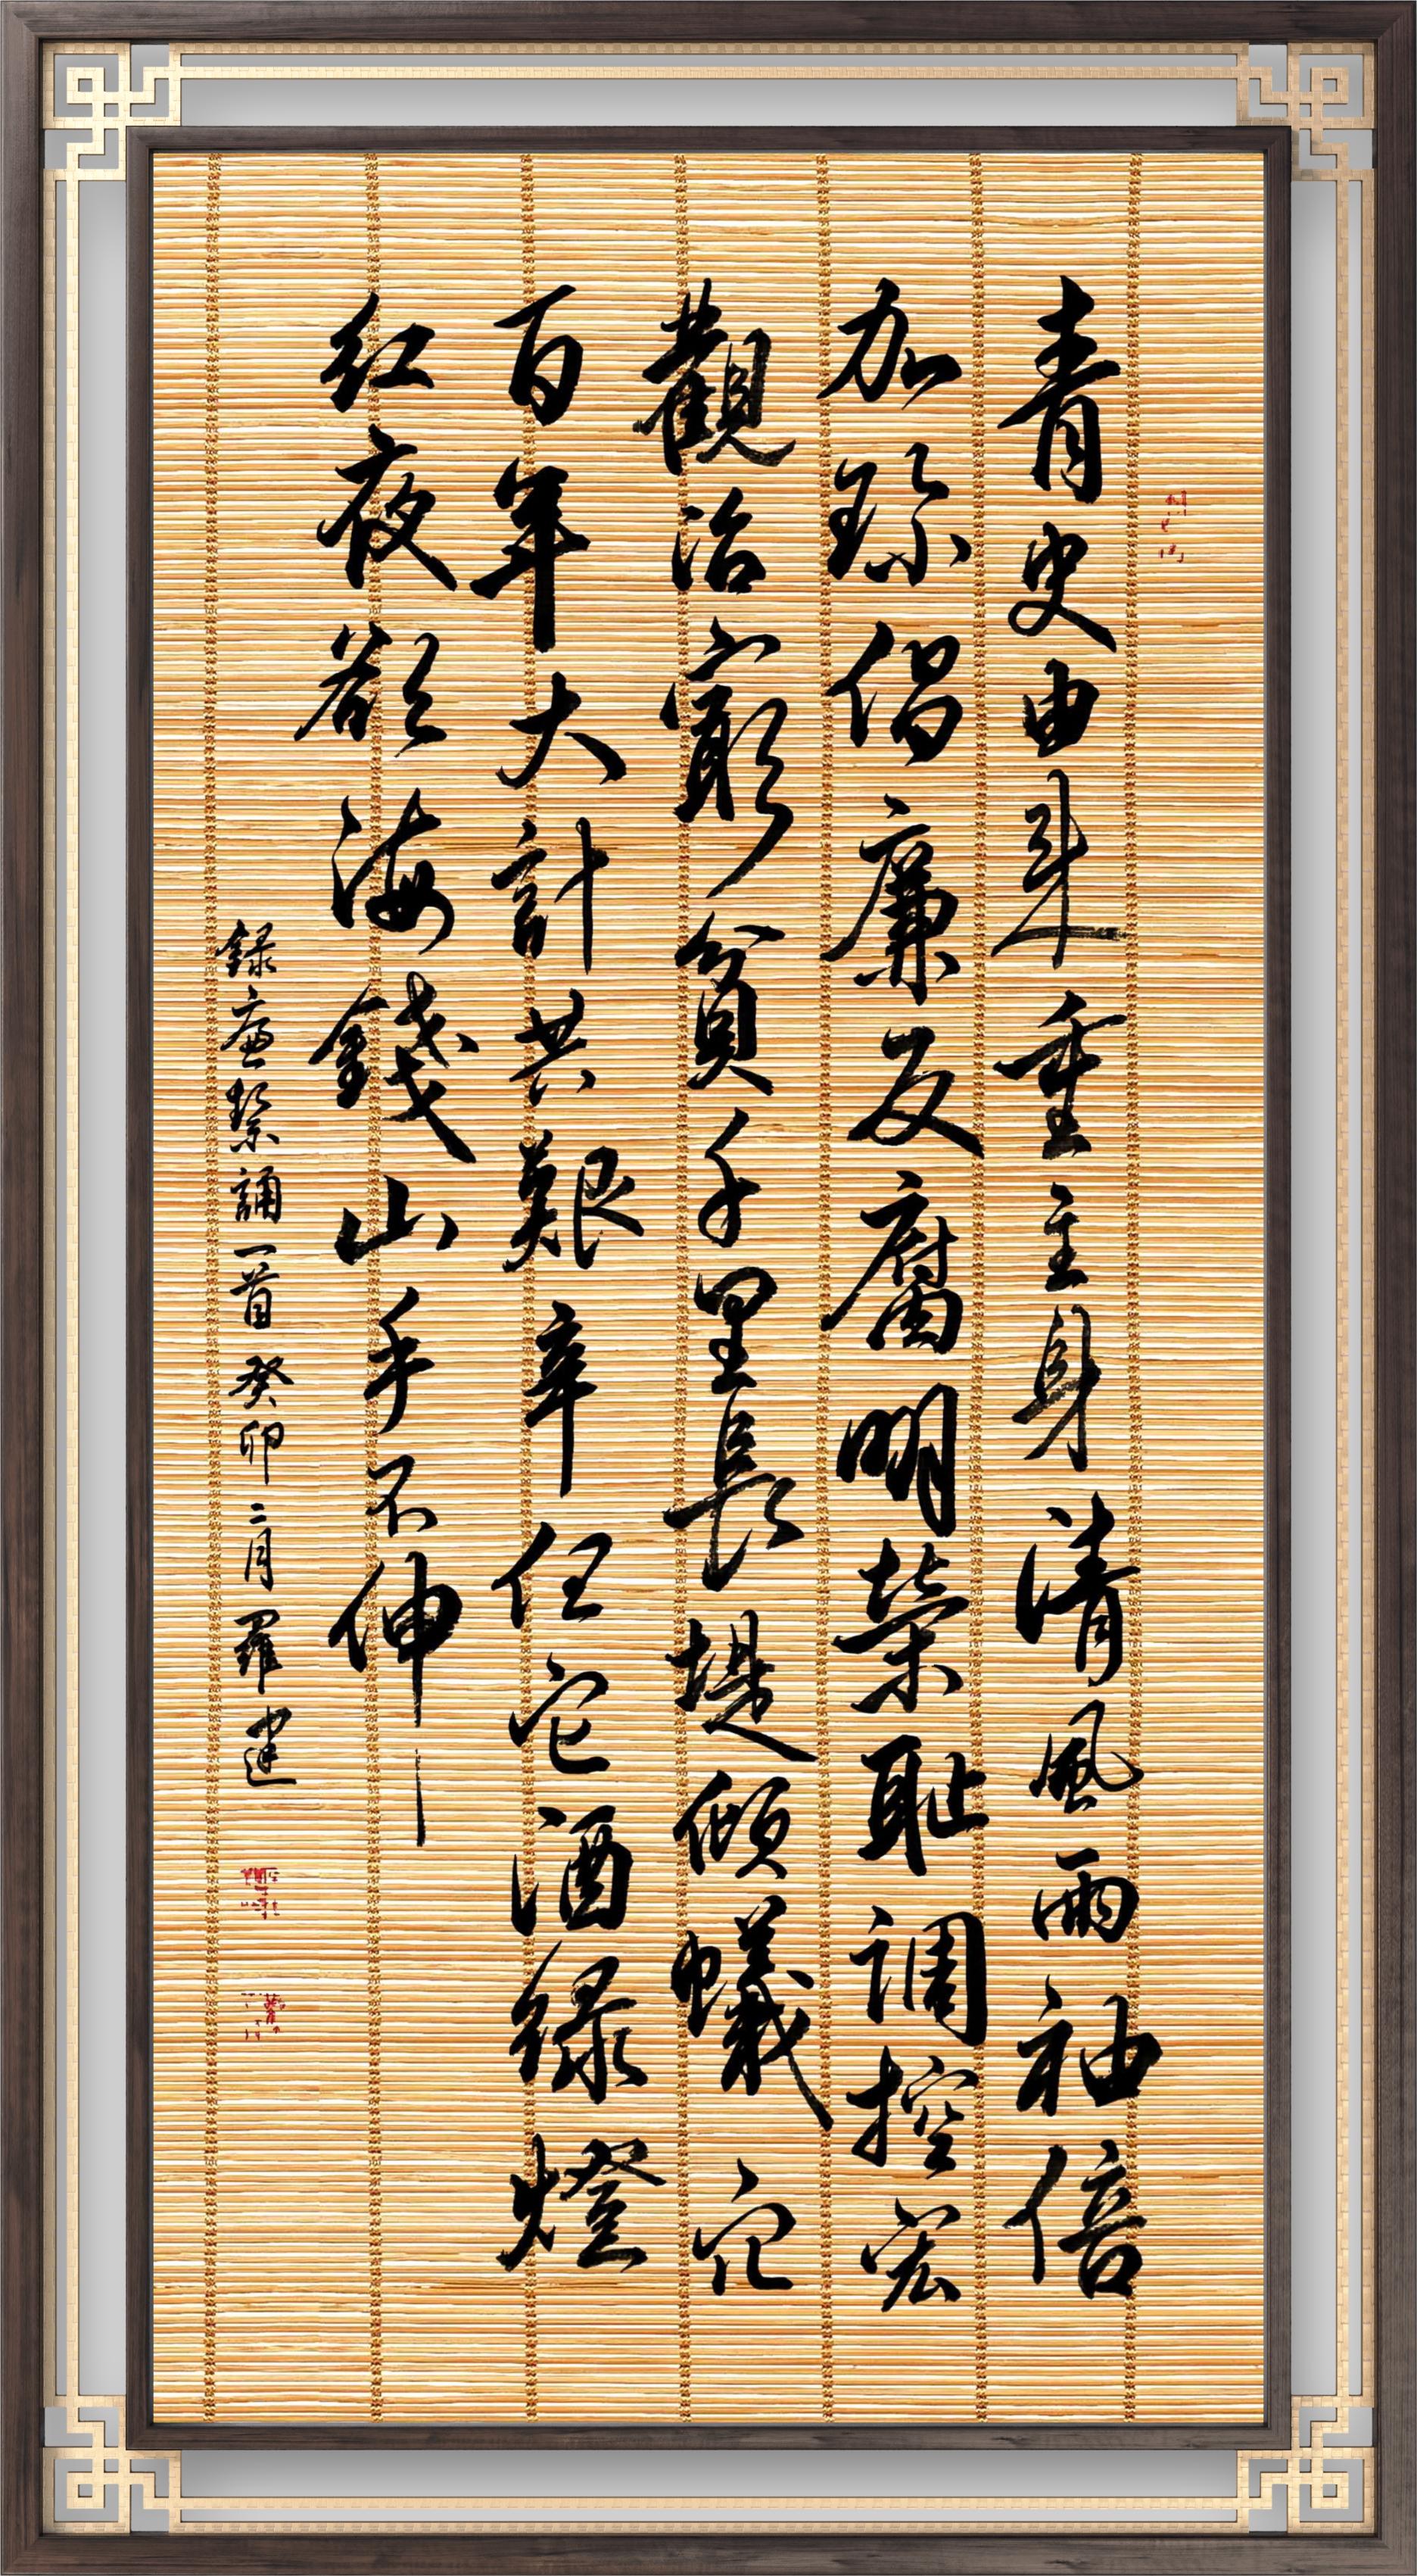 青史由来重立身清風兩袖倍
加珎倡廉反腐明榮耻調控宏
觀治窮貧千里長堤傾蟻穴
百年大計共艱辛任它酒緑燈
紅夜欲海錢山手不伸
録廉潔誦一首癸卯二月羅建